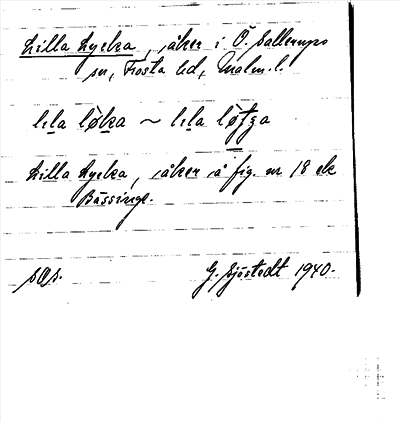 Lilla Lycka, åker i Ö. Sallerups
sn, Frosta hd, Malm. l.
lila løka ~ lila løtga
Lilla Lycka, åker å fig. nr 18 ek
Bässinge.
SOS.
G. Sjöstedt 1940.